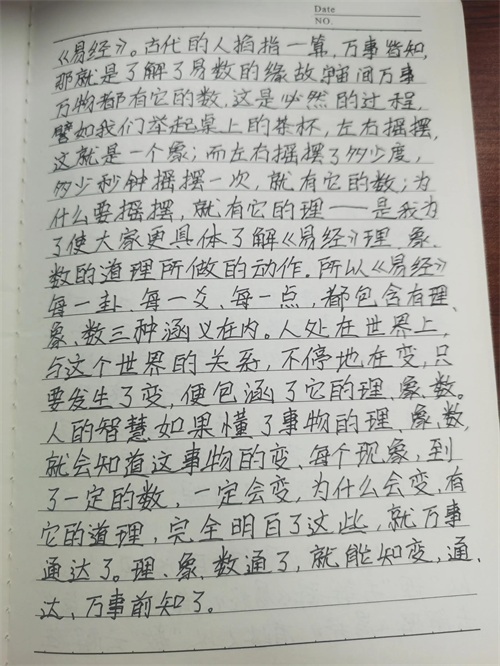 Date
NO.
《易经》。古代的人掐指一算,万事皆知,
那就是了解了易数的缘故,宇宙间万事
万物都有它的数,这是必然的过程,
譬如我们举起桌上的茶杯,左右摇摆,
这就是一个象;而左右摇摆了多少度,
多少秒钟摇摆一次,就有它的数;为
什么要摇摆,就有它的理——是我为
了使大家更具体了解《易经》理、象、
数的道理所做的动作.所以《易经》
每一卦、每一爻、每一点,都包含有理、
象、数三种涵义在内。人处在世界上,
与这个世界的关系,不停地在变,只
要发生了变,便包涵了它的理、象、数。
人的智慧如果懂了事物的理、象、数,
就会知道这事物的变、每个现象,到
了一定的数,一定会变,为什么会变,有
它的道理,完全明白了这些,就万事
通达了。理、象、数通了,就能知变,通、
达,万事前知了。